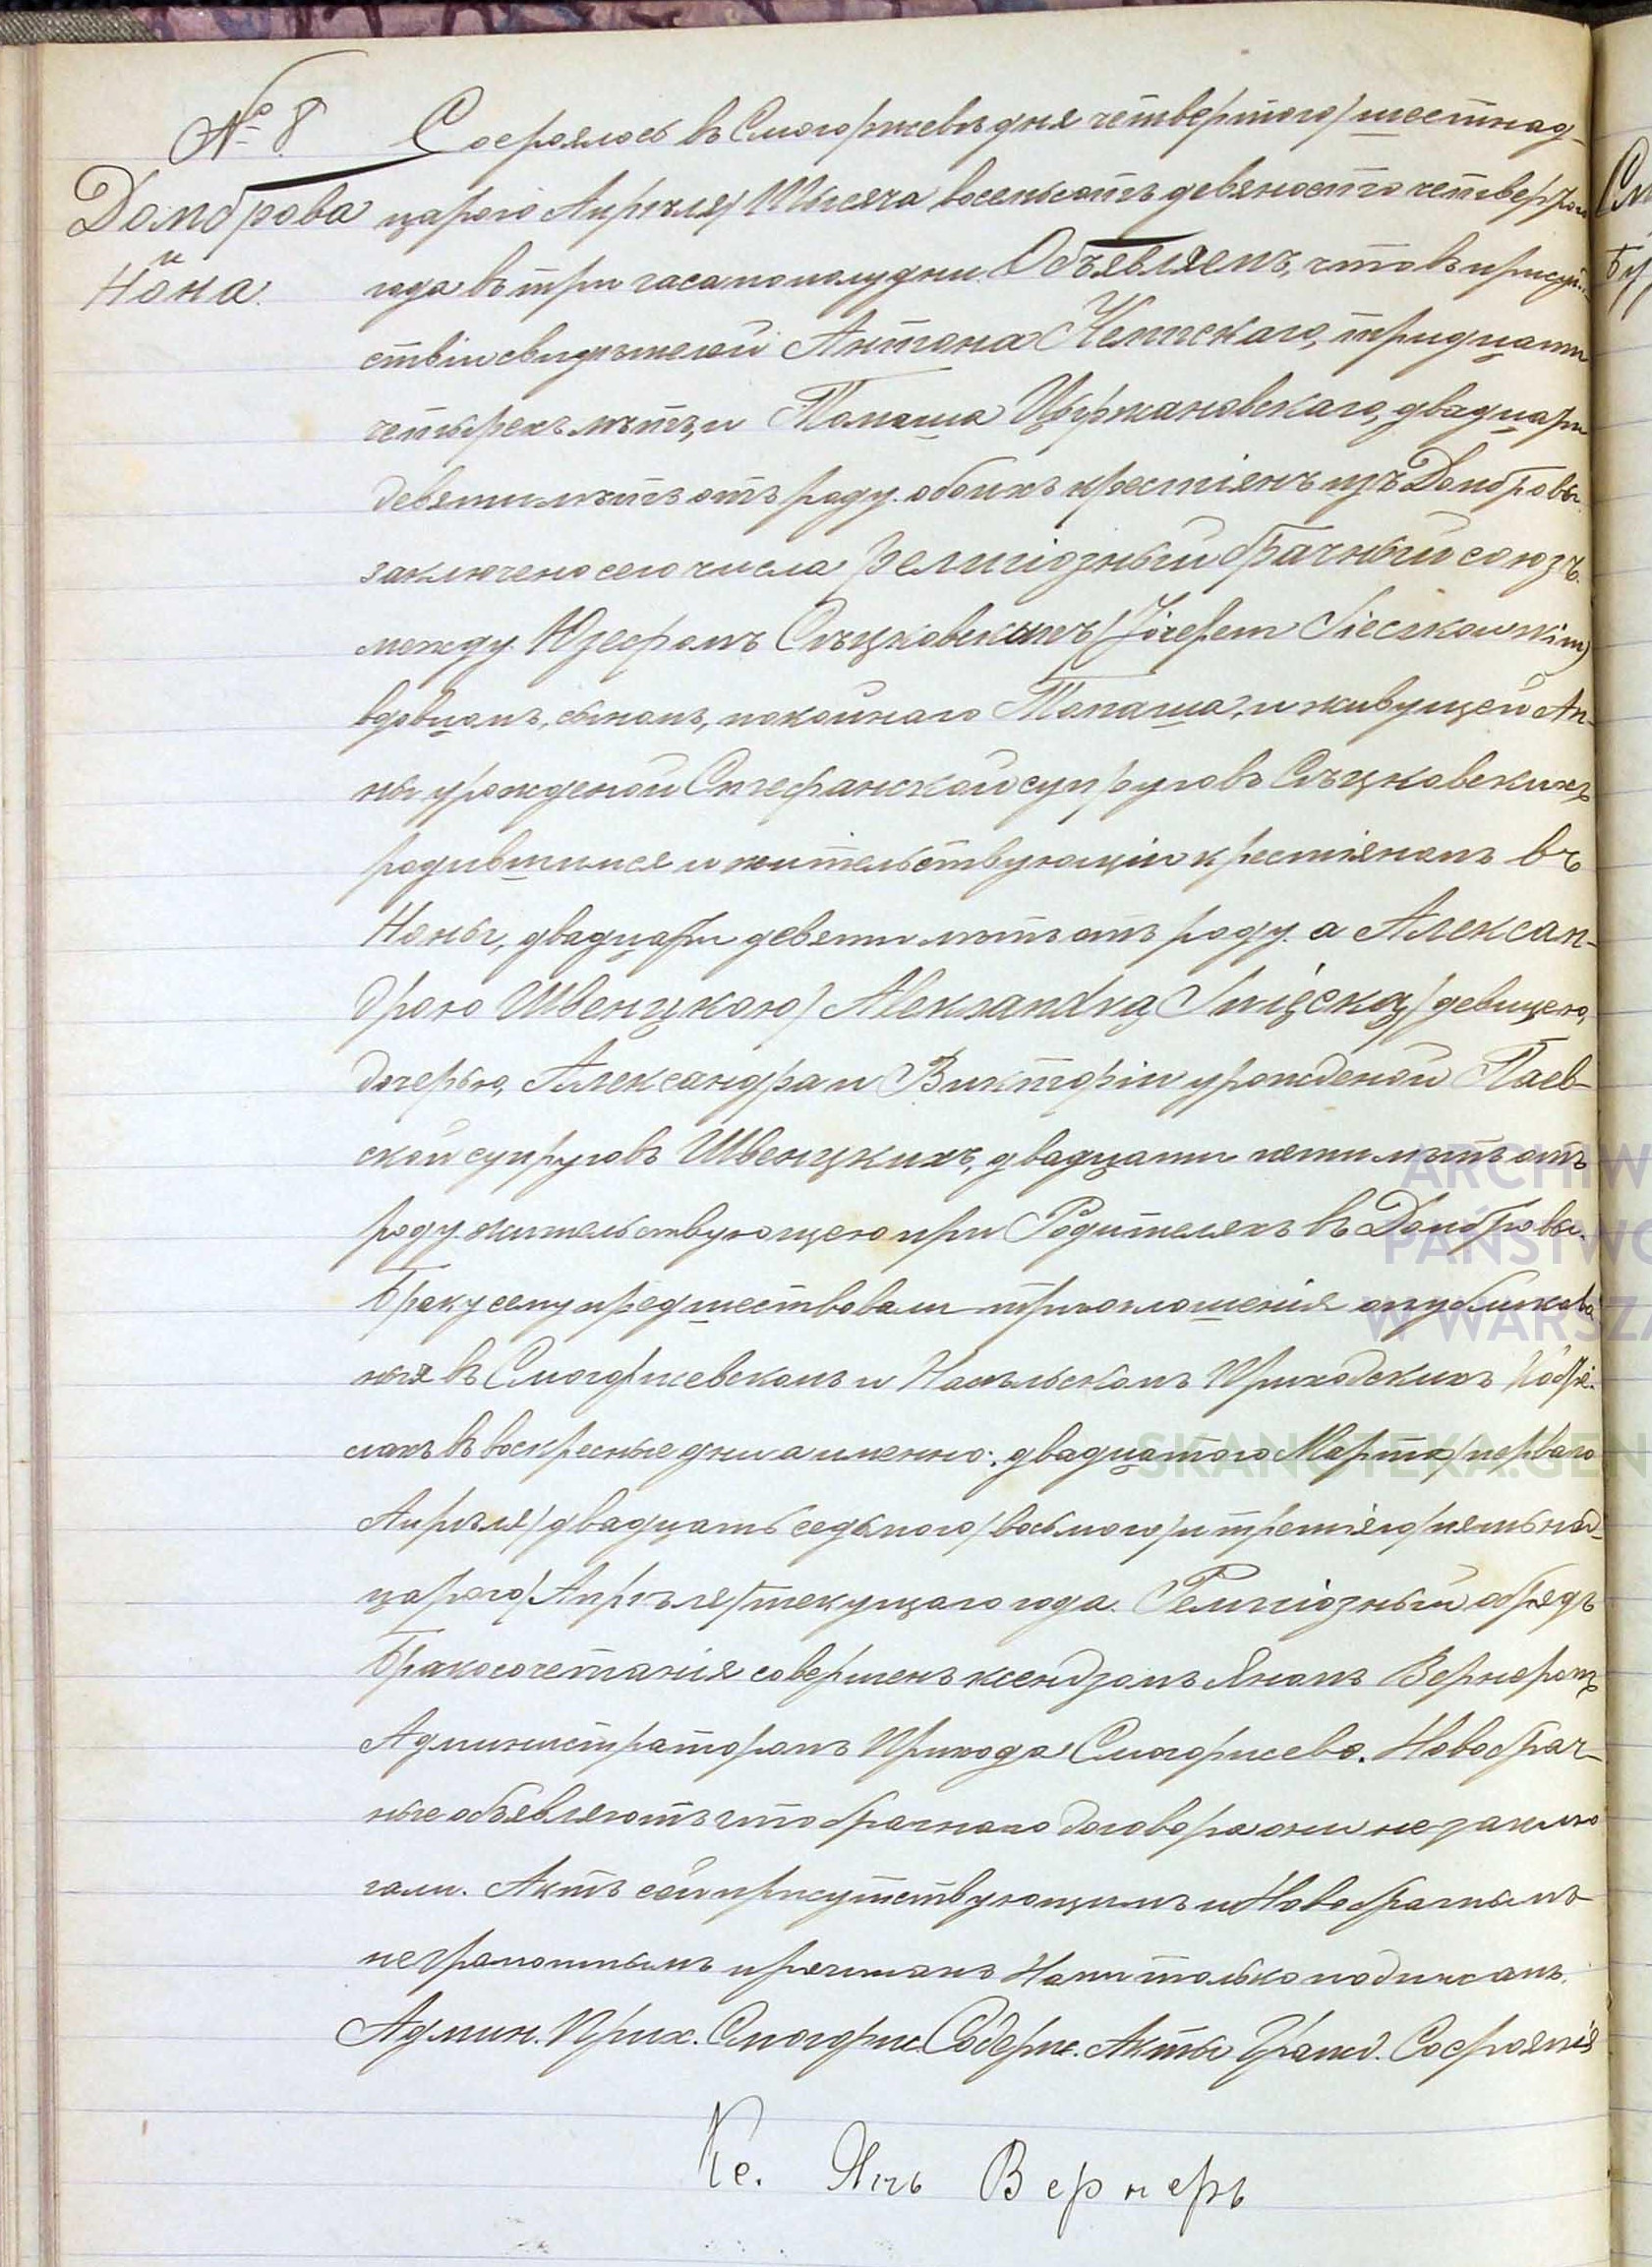 № 8
Домброва
и
Нона.
Состоялось въ Смогоржевѣ дня четвертого/шестнад-
цатого Апрѣля/Тысяча восемьсотъ девяносто четвертого
года въ три часа пополудни. Объявляемъ, что въ присут-
ствіи свидѣтелей Антона Кемпскаго, тридцати
четырехъ лѣтъ, и Томаша Цыржановскаго, двадцати
девяти лѣтъ отъ роду. обоихъ крестіянъ изъ Домбровы.
заключено сего числа религіозный брачный союзъ.
между Юзефомъ Сѣцковскимъ (Józefem Sieckowskim)
вдовцомъ, сыномъ, покойнаго Томаша, и живущей Ан-
ны урожденой Стефанской супруговъ Сѣцковскихъ
родившимся и жительствующім крестіяномъ въ
Ноны, двадцати девяти лѣтъ отъ роду. а Алексан-
дрою Швенцкою/Aleksandrą Święcką/девицею,
дочерью, Александра и Викторіи урожденой Паев-
ской супруговъ Швенцкихъ, двадцати пяти лѣтъ отъ
роду жительствующею при Родителяхъ въ Домбровы.
Браку сему предшествовали три оглошенія опубликова
ныя въ Смогоржевскомъ и Насѣльскомъ Приходскихъ Костё-
лахъ въ воскресные дни а именно: двадцатого Марта/первого
Апрѣля/двадцать седьмого/восьмого/и третіяго/пятьнад-
цатого/Апрѣля/текущаго года. Религіозный обрядъ
Бракосочетанія совершенъ ксендзомъ Яномъ Вернеромъ
Администраторомъ Прихода Смогоржево. Новобрач-
ные объявляютъ что брачного договора они не заклю
чали. Актъ сей присутствующимъ и Новобрачнымъ
неграмотнымъ прочитанъ Нами только подписанъ.
Админ. Прих. Смогорж. Содерж. Акты Гражд. Состоянія
Кс. Янъ Вернеръ
ARCHIW
PAŃSTWO
W WARSZA
SKANOTEKA.GEN